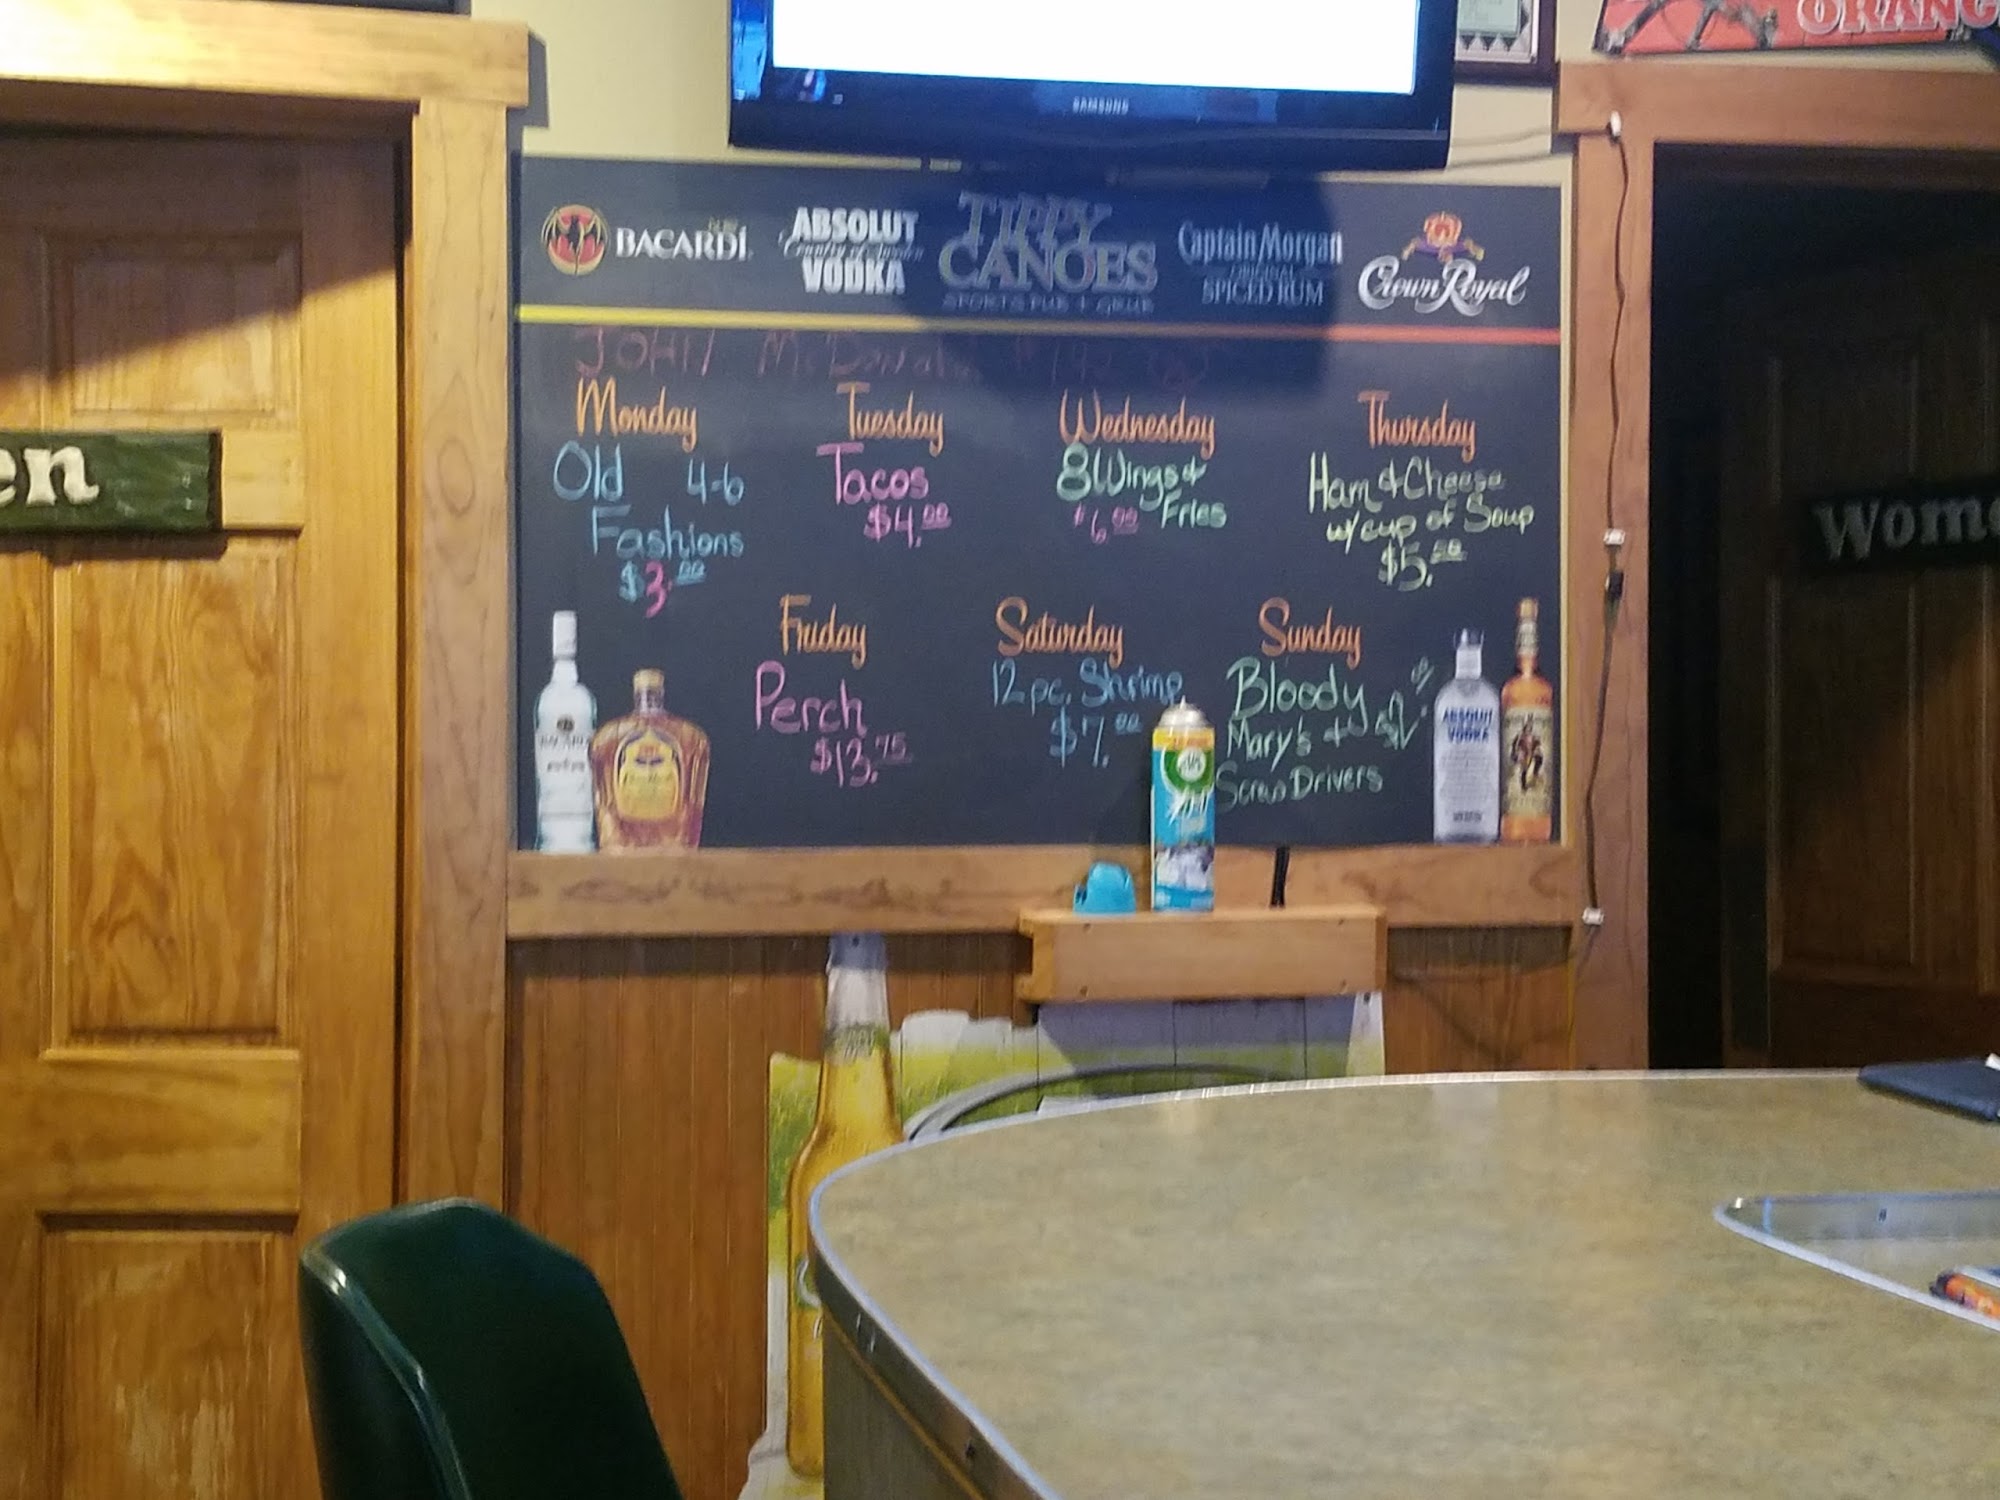 SAMSUNG
ORANG
BACARDÍ
ABSOLUT
Country of Sweden
VODKA
TIPPY
CANOES
SPORTS PUB + GRUB
Captain Morgan
ORIGINAL
SPICED RUM
Crown Royal
JOHN McDonald
Monday
Old 4-6
Fashions
$3.00
Tuesday
Tacos
$4.00
Wednesday
8 Wings &
Fries
$6.00
Thursday
Ham & Cheese
w/ cup of Soup
$5.00
Friday
Perch
$13.75
Saturday
12 pc. Shrimp
$7.00
Sunday
Bloody
Mary's &
Screw Drivers
BACARDI
ABSOLUT
VODKA
en
Wome